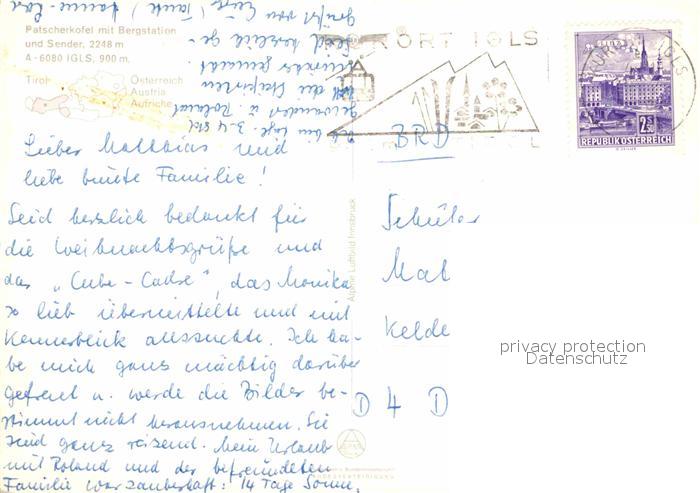 Patscherkofel mit Bergstation
und Sender, 2248 m
A-6080 IGLS, 900 m.
Tirol
Österreich
Austria
Autriche
KURORT IGLS
IGLS
2.50
REPUBLIK ÖSTERREICH
BRD
Lieber Matthias und
liebe Familie!
Seid herzlich bedankt für
die Weihnachtsgrüße und
das „Cube-Cadre", das Monika
so lieb übermittelte und mit
Kennerblick aussuchte. Ich ha-
be mich ganz mächtig darüber
gefreut u. werde die Bilder be-
stimmt nicht herausnehmen. Sie
sind ganz reizend. Mein Urlaub
mit Roland und der befreundeten
Familie war zauberhaft: 14 Tage Sonne,
am Tage 3-4 Std.
gewandert u. Roland
Seid herzlich ge-
grüßt von
Alpine Luftbild Innsbruck
Schüler
Mat
Kelde
D 4 D
privacy protection
Datenschutz